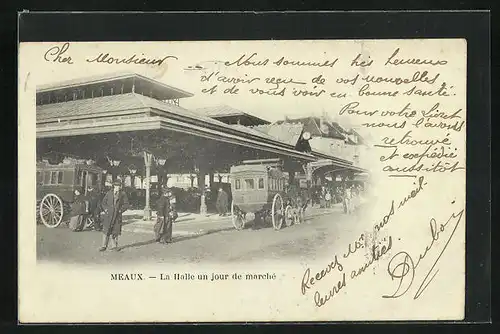 Cher Monsieur
Nous sommes très heureux
d'avoir reçu de vos nouvelles
et de vous voir en bonne santé.
Pour votre livret
nous l'avons
retrouvé
et expédié
aussitôt
MEAUX. — La Halle un jour de marché
Recevez Mr nos meil-
leures amitiés.
Duboy